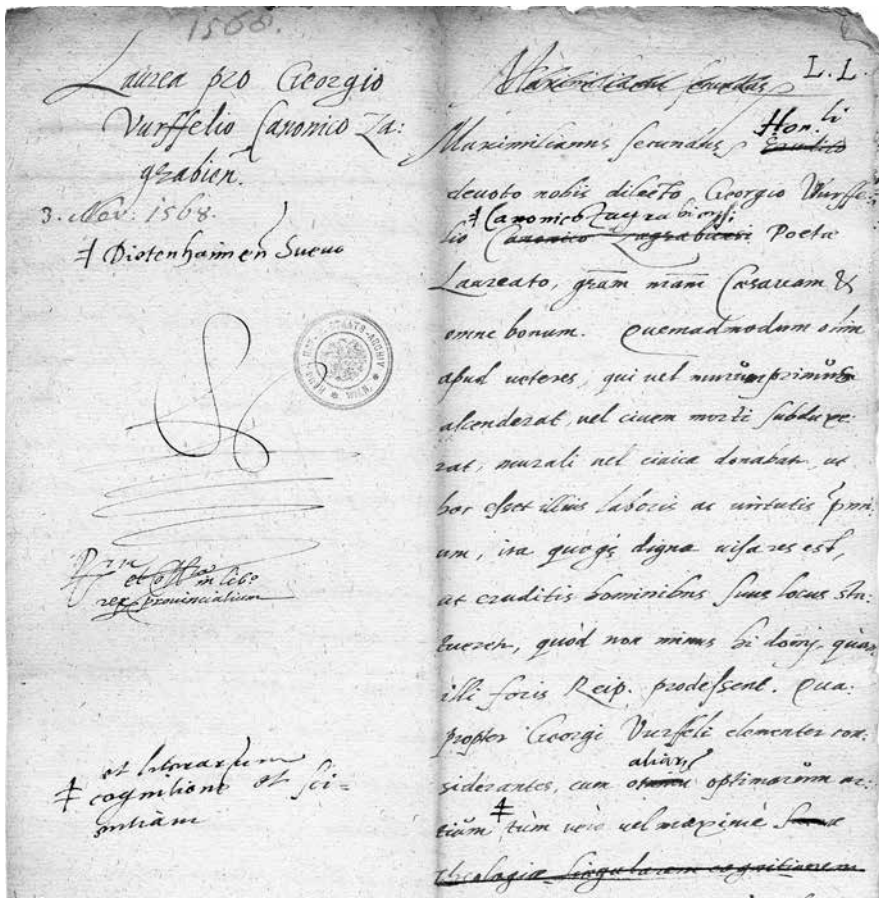 1568.
Laurea pro Georgio
Vurffelio Canonico Za:
grabien.
3. Nov. 1568.
‡ Dietenhaimen Suevo
HAUS- HOF- U. STAATS-ARCHIV WIEN.
et in lib°
provincialium
et literarum
‡ cognitione et sci=
entiam
L. L.
Maximilianus secundus
Maximilianus secundus Hon.li Erudito
devoto nobis dilecto Georgio Wurffe:
‡ Canonico Zagrabiensi
lio Canonico Zagrabiensi Poetæ
Laureato, gram nram Cæsaream &
omne bonum. Quemadmodum olim
apud veteres, qui vel murum primum
ascenderat, vel civem morti subduxe:
rat, murali vel civica donabatr, ut
hoc esset illius laboris ac virtutis
um, ita quoqȝ digna visa res est,
ut eruditis hominibus suus locus sta:
tueretr, quòd non minus hi domj, quàm
illi foris Reip. prodessent. Qua:
propter Georgi Vurffeli clementer con:
siderantes, cum aliarȝ optimarum ar:
tium ‡ tùm verò vel maximè
theologiæ singularem cognitionem